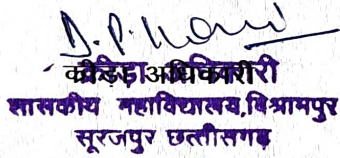 D.P. Kori
क्रीड़ा अधिकारी
शासकीय महाविद्यालय, विश्रामपुर
सूरजपुर छत्तीसगढ़